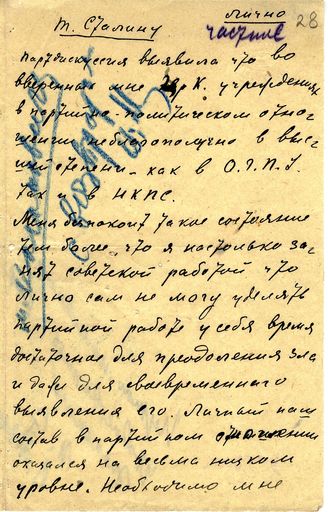 лично
частное
28
т. Сталину
Партдискуссия выявила что во
вверенных мне учреждениях
в партийно-политическом отно-
шении неблагополучно в выс-
шей степени - как в О.Г.П.У.
так и в НКПС.
Меня беспокоит такое состояние
тем более, что я настолько за-
нят советской работой что
лично сам не могу уделять
партийной работе у себя время
достаточное для преодоления зла
и даже для своевременного
выявления его. Личный наш
состав в партийном отношении
оказался на весьма низком
уровне. Необходимо мне